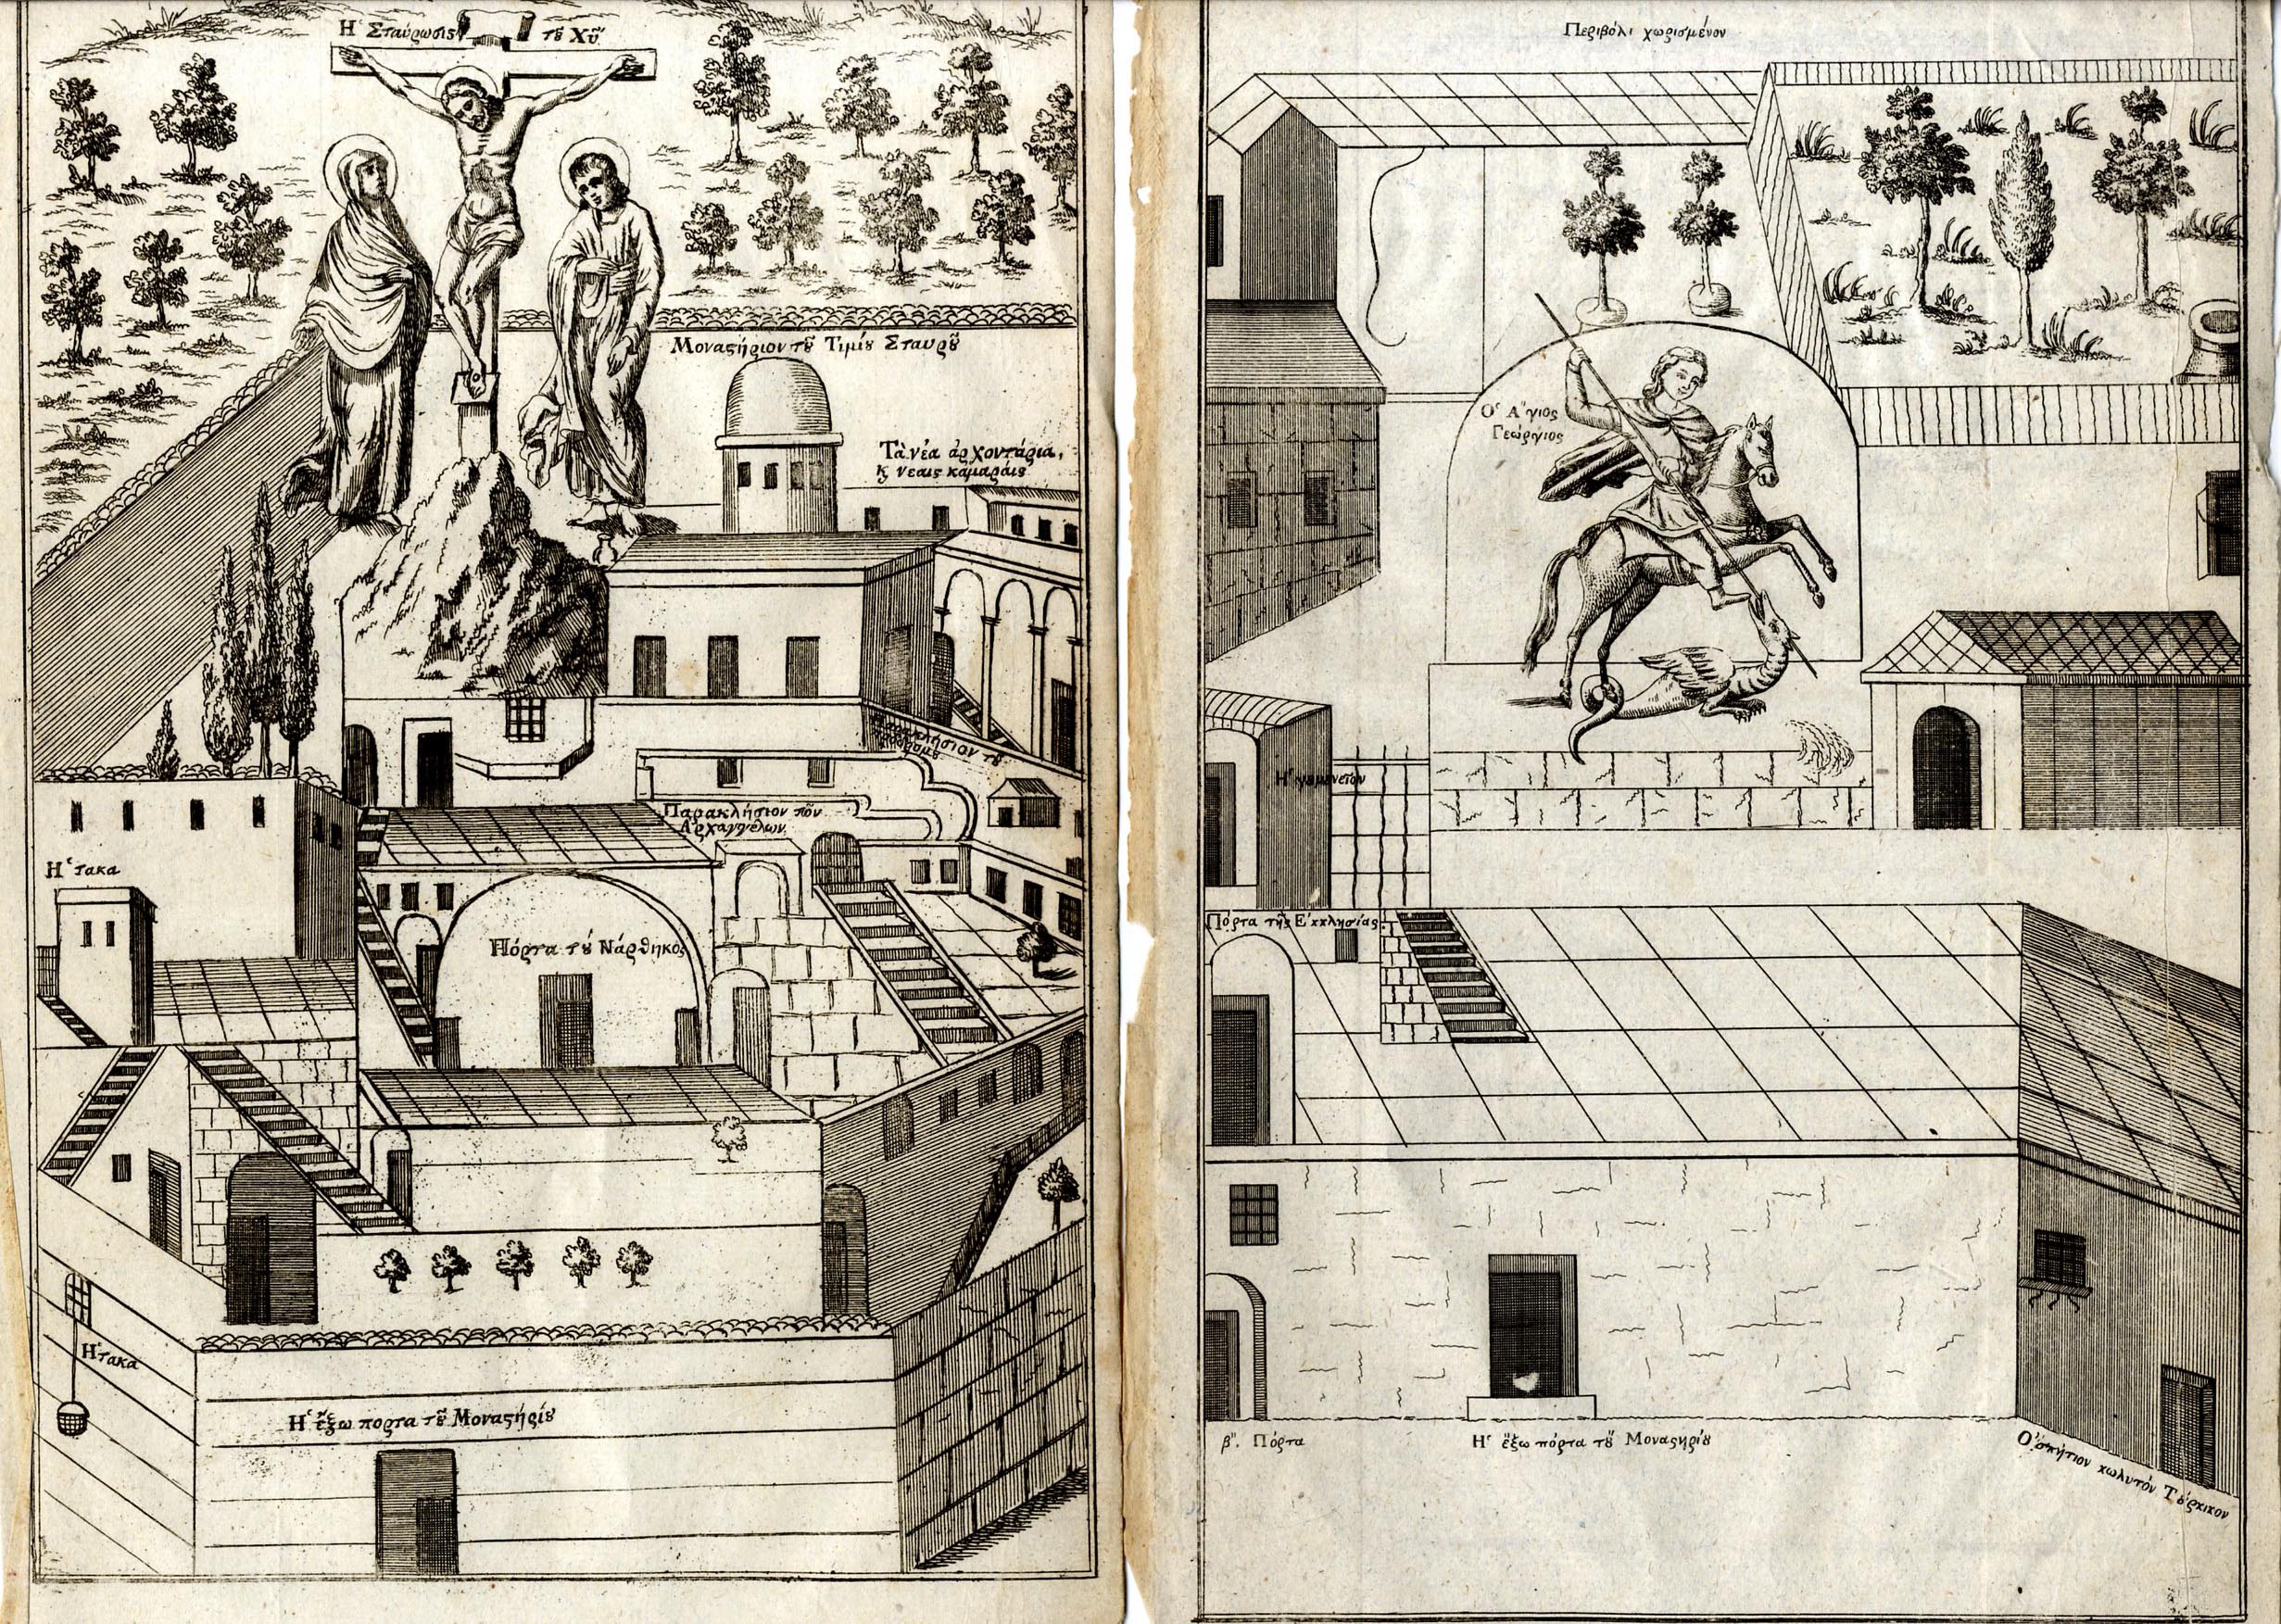 Ἡ Σταύρωσις τȣ͂ Χȣ͂
Μοναςήριον τȣ͂ Τιμίȣ Σταυρȣ͂
Τὰ νέα ἀρχοντάρια,
ϗ νεαις καμαραις
Παρακλήσιον τῶν
Ἀρχαγγέλων
Ἡ τακα
Πόρτα τȣ͂ Νάρθηκος
Ἡ τακα
Ἡ ἔξω πορτα τȣ͂ Μοναςήριȣ
Περιβόλι χωρισμένον
Ὁ Ἅγιος
Γεώργιος
Ἡγȣμενεῖον
Πόρτα τῆς Ἐκκλησίας
β. Πόρτα
Ἡ ἔξω πόρτα τȣ͂ Μοναςηρίȣ
Ὁσπήτιον χωλυτόν Τȣ́ρκικον